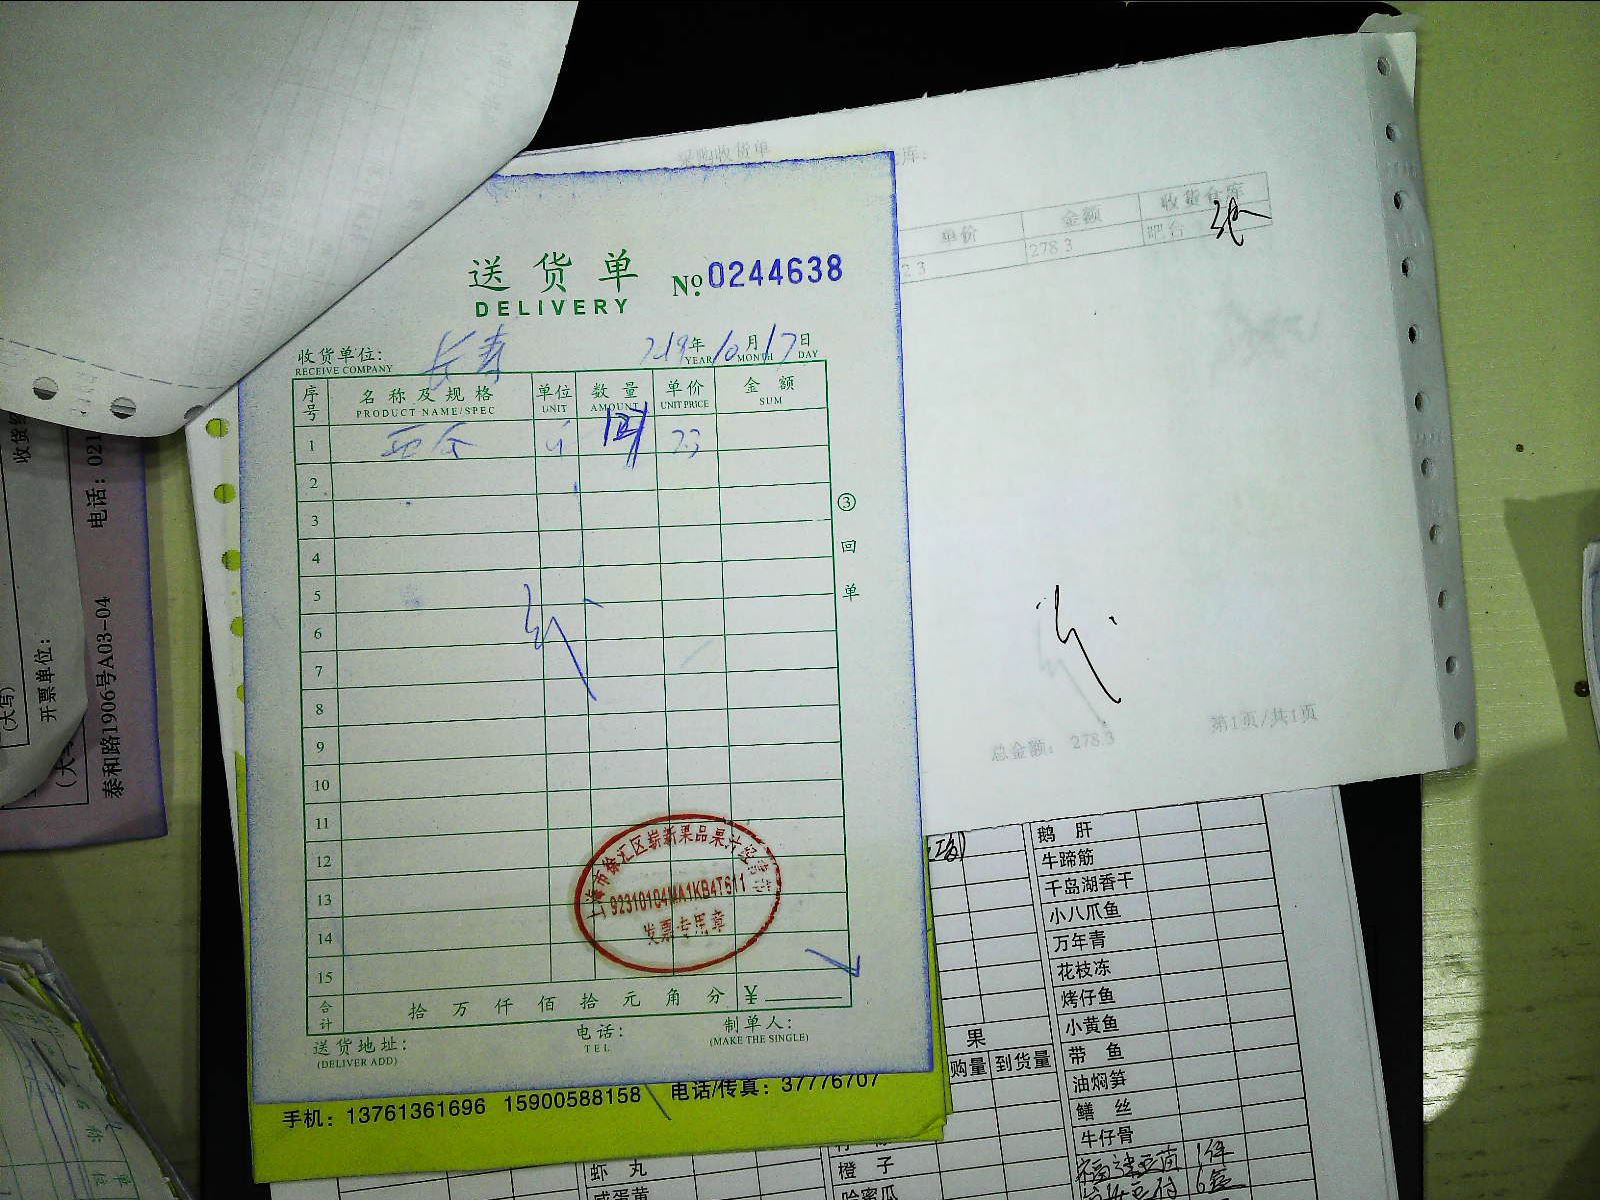 采购收货单
库:
单价 金额 收货仓库
2.3 278.3 吧台
送货单 No. 0244638
DELIVERY
收货单位: 长寿 年 10月 17日
RECEIVE COMPANY YEAR MONTH DAY
序号 名称及规格 单位 数量 单价 金额
PRODUCT NAME/SPEC UNIT AMOUNT UNIT PRICE SUM
1 西瓜 23
2
3
4
5
6
7
8
9
10
11
12
13
14
15
③回单
上海市徐汇区崭新果品果汁经营部
92310104MA1KB4T611
发票专用章
合计 拾 万 仟 佰 拾 元 角 分 ¥
送货地址: 电话: 制单人:
(DELIVER ADD) TEL (MAKE THE SINGLE)
手机: 13761361696 15900588158 电话/传真: 37776707
总金额: 278.3 第1页/共1页
收货
电话: 021
开票单位:
(大写)
泰和路1906号A03-04
鹅肝
牛蹄筋
千岛湖香干
小八爪鱼
万年青
花枝冻
烤仔鱼
小黄鱼
带鱼
油焖笋
鳝丝
牛仔骨
果
购量 到货量
虾丸
咸蛋黄
橙子
哈蜜瓜